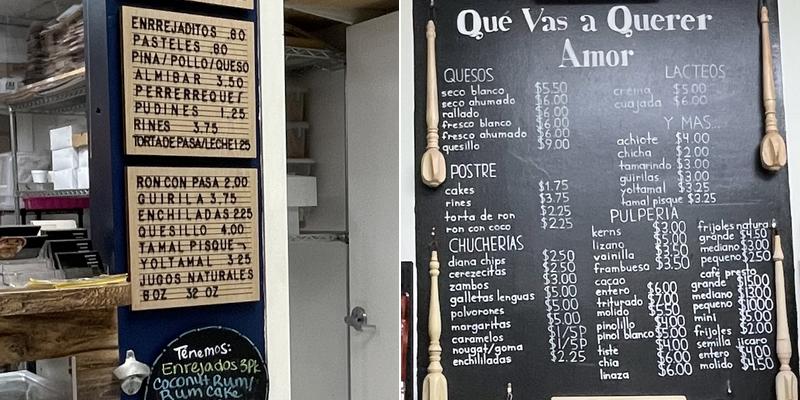 ENRREJADITOS .80
PASTELES .80
PINA/POLLO/QUESO
ALMIBAR 3.50
PERRERREQUE
PUDINES 1.25
RINES 3.75
TORTADEPASA/LECHE 1 25
RON CON PASA 2.00
GUIRILA 3.75
ENCHILADAS 2.25
QUESILLO 4.00
TAMAL PISQUE
YOLTAMAL 3.25
JUGOS NATURALES
8 OZ 32 OZ
Tenemos:
Enrejados 3Pk
Coconut Rum/
Rum cake
Qué Vas a Querer
Amor
QUESOS
seco blanco $5.50
seco ahumado $6.00
rallado $6.00
fresco blanco $6.00
fresco ahumado $6.00
quesillo $9.00
POSTRE
cakes $1.75
rines $3.75
torta de ron $2.25
ron con coco $2.25
CHUCHERIAS
diana chips $2.50
cerezcitas $2.50
zambos $3.00
galletas lenguas $5.00
polvorones $5.00
margaritas $5.00
caramelos $1/5p
nougat/goma $1/5p
enchililadas $2.25
LACTEOS
crema $5.00
cuajada $6.00
Y MAS...
achiote $4.00
chicha $2.00
tamarindo $3.00
guirilas $3.00
yoltamal $3.25
tamal pisque $3.25
PULPERIA
kerns $3.00
lizano $5.00
vainilla $3.50
frambueso $3.50
cacao
entero $6.00
triturado
molido $5.50
pinolillo
pinol blanco
tiste $4.00
chia $6.00
linaza $6.00
frijoles natura
grande $4.50
mediano $3.00
pequeno $2.50
café presto
grande
mediano
pequeno
mini $5.00
frijoles $2.00
semilla jicaro
entero $4.00
molido $4.50